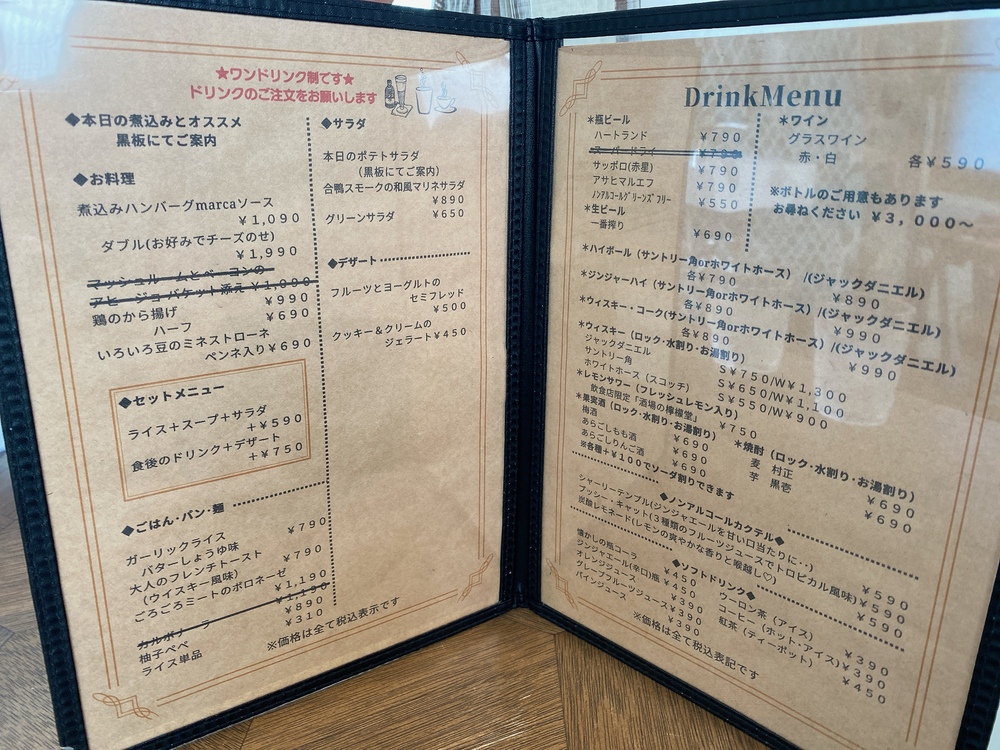 ★ワンドリンク制です★
ドリンクのご注文をお願いします
◆本日の煮込みとオススメ
黒板にてご案内
◆お料理
煮込みハンバーグmarcaソース
￥1,090
ダブル(お好みでチーズのせ)
￥1,990
マッシュルームとベーコンの
アヒージョバケット添え ￥1,090
￥990
鶏のから揚げ
￥690
ハーフ
いろいろ豆のミネストローネ
ペンネ入り ￥690
◆セットメニュー
ライス＋スープ＋サラダ
＋￥590
食後のドリンク＋デザート
＋￥750
◆ごはん・パン・麺
￥790
ガーリックライス
バターしょうゆ味
￥790
大人のフレンチトースト
(ウィスキー風味)
￥1,190
ごろごろミートのボロネーゼ
￥1,190
カルボナーラ
￥890
柚子ペペ
￥310
ライス単品
◆サラダ
本日のポテトサラダ
(黒板にてご案内)
合鴨スモークの和風マリネサラダ
￥890
グリーンサラダ ￥650
◆デザート
フルーツとヨーグルトの
セミフレッド
￥500
クッキー＆クリームの
ジェラート ￥450
※価格は全て税込表示です
DrinkMenu
＊瓶ビール
ハートランド ￥790
スーパードライ ￥790
サッポロ(赤星) ￥790
アサヒマルエフ ￥790
ﾉﾝｱﾙｺｰﾙｸﾞﾘｰﾝｽﾞﾌﾘｰ ￥550
＊生ビール
一番搾り
￥690
＊ワイン
グラスワイン
赤・白 各￥590
※ボトルのご用意もあります
お尋ねください ￥3,000〜
＊ハイボール（サントリー角orホワイトホース） /(ジャックダニエル)
各￥790 ￥890
＊ジンジャーハイ（サントリー角orホワイトホース）/(ジャックダニエル)
各￥890 ￥990
＊ウィスキー・コーク(サントリー角orホワイトホース）/(ジャックダニエル)
各￥890 ￥990
＊ウィスキー（ロック・水割り・お湯割り）
ジャックダニエル S￥750/W￥1,300
サントリー角 S￥650/W￥1,100
ホワイトホース（スコッチ） S￥550/W￥900
＊レモンサワー（フレッシュレモン入り）
飲食店限定「酒場の檸檬堂」 ￥750
＊果実酒（ロック・水割り・お湯割り）
梅酒 ￥690
あらごしもも酒 ￥690
あらごしりんご酒 ￥690
※各種＋￥100でソーダ割りできます
＊焼酎（ロック・水割り・お湯割り）
麦 村正 ￥690
芋 黒壱 ￥690
◆ノンアルコールカクテル◆
シャーリーテンプル(ジンジャエールを甘い口当たりに‥) ￥590
プッシー・キャット(3種類のフルーツジュースでトロピカル風味) ￥590
炭酸レモネード(レモンの爽やかな香りと喉越し♡) ￥590
◆ソフトドリンク◆
懐かしの瓶コーラ ￥450
ジンジャエール(辛口)瓶 ￥450
オレンジジュース ￥390
グレープフルーツジュース ￥390
パインジュース ￥390
ウーロン茶（アイス） ￥390
コーヒー（ホット・アイス） ￥390
紅茶（ティーポット） ￥450
※価格は全て税込表記です